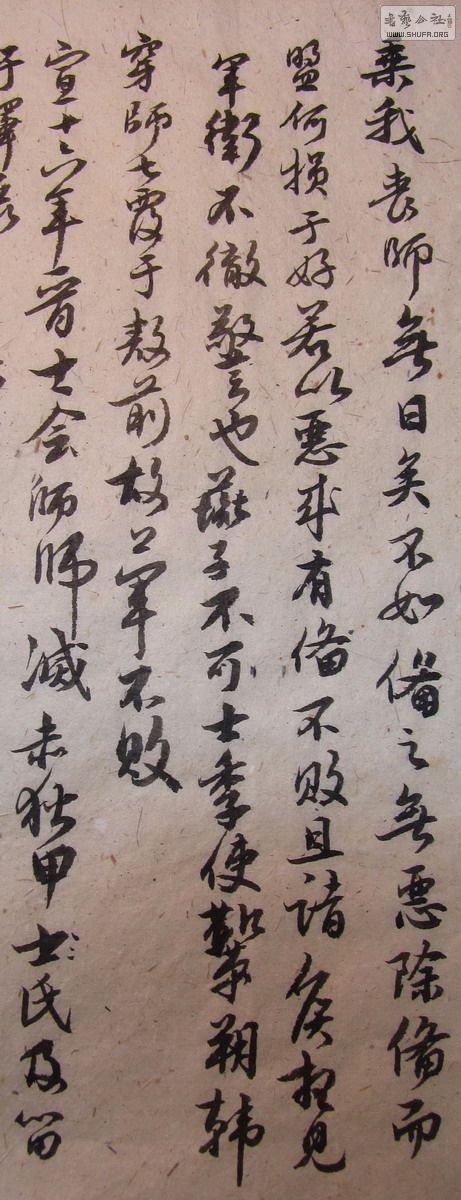 乘我丧師無日矣不如備之無惡除備而
盟何損于好若以惡来有備不敗且諸侯相見
軍衛不徹警也彘子不可士季使鞏朔韓
穿師七覆于敖前故上軍不敗
宣十六年晋士会师師滅赤狄甲士氏及留
書藝公社
WWW.SHUFA.ORG